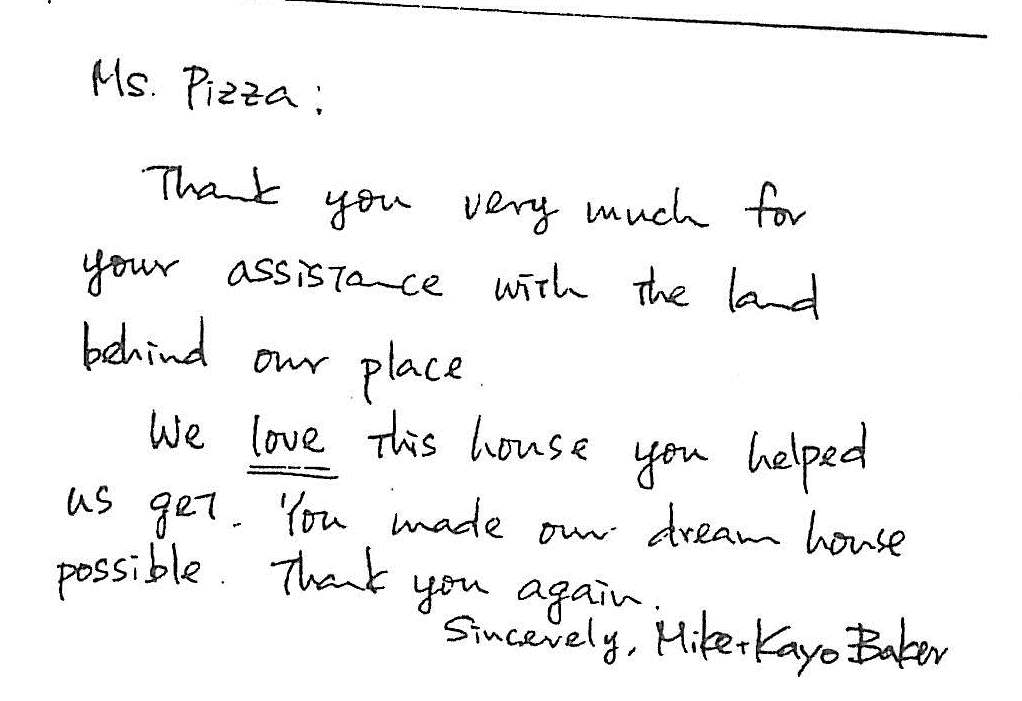 Ms. Pizza:
Thank you very much for
your assistance with the land
behind our place.
We love this house you helped
us get. You made our dream house
possible. Thank you again.
Sincerely, Mike + Kayo Baker